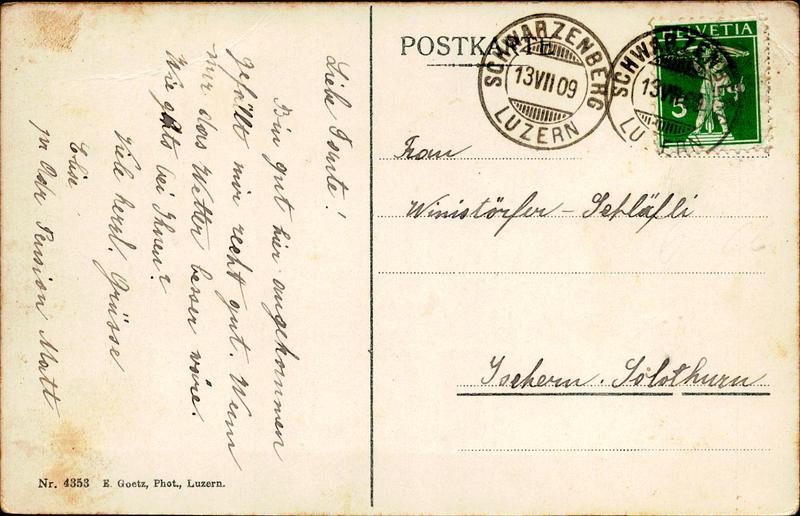 Liebe Tante!
Bin gut hier angekommen
gefällt mir recht gut. Wenn
nur das Wetter besser wäre.
Wie gehts bei Ihnen?
Viele herzl. Grüsse
Elise
Pension Matt
Nr. 4353 E. Goetz, Phot., Luzern.
POSTKARTE
SCHWARZENBERG
13 VII 09
LUZERN
SCHWARZENBERG
13 VII 09
LUZERN
HELVETIA
5
Frau
Winistörfer - Schläfli
Solothurn